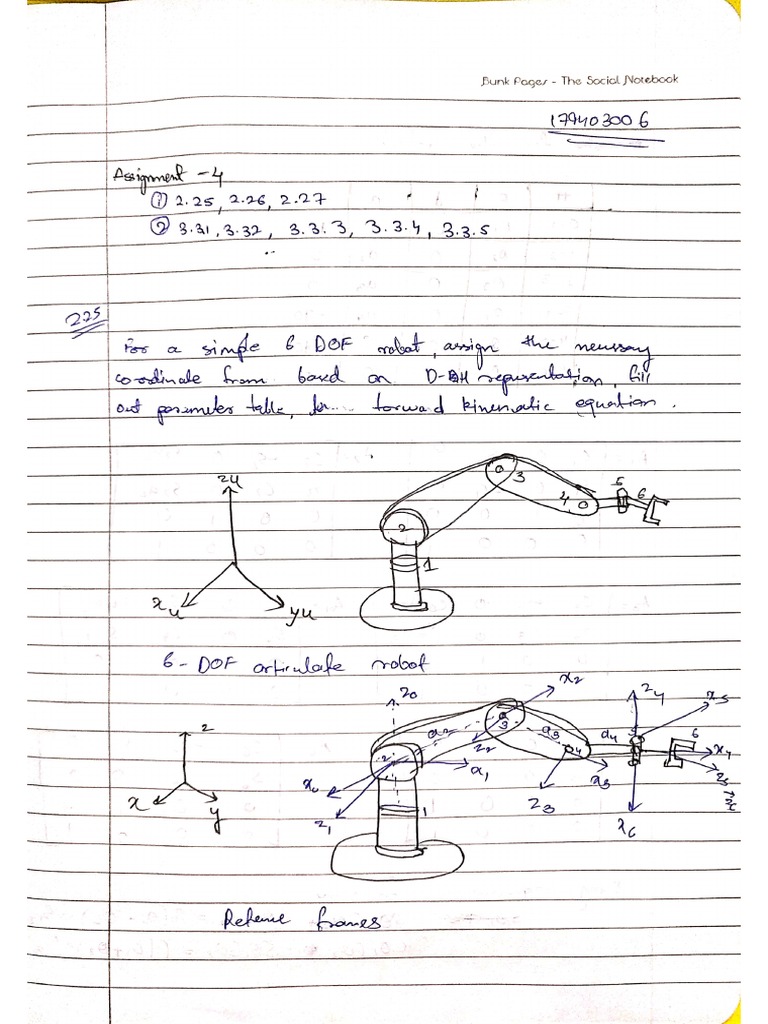 Bunk Pages - The Social Notebook
179403006
Assignment - 4
① 2.25, 2.26, 2.27
② 3.31, 3.32, 3.3.3, 3.3.4, 3.3.5
225
For a simple 6 DOF robot, assign the
coordinate from based on D-H representation, fill
out table, forward kinematic equation.
zu
xu
yu
1
2
3
4
5
6
6-DOF articulate robot
z
x
y
z0
x0
z1
x1
a2
z2
x2
a3
z3
x3
a4
z4
x4
x5
z5
x6
1
2
3
4
5
6
frames